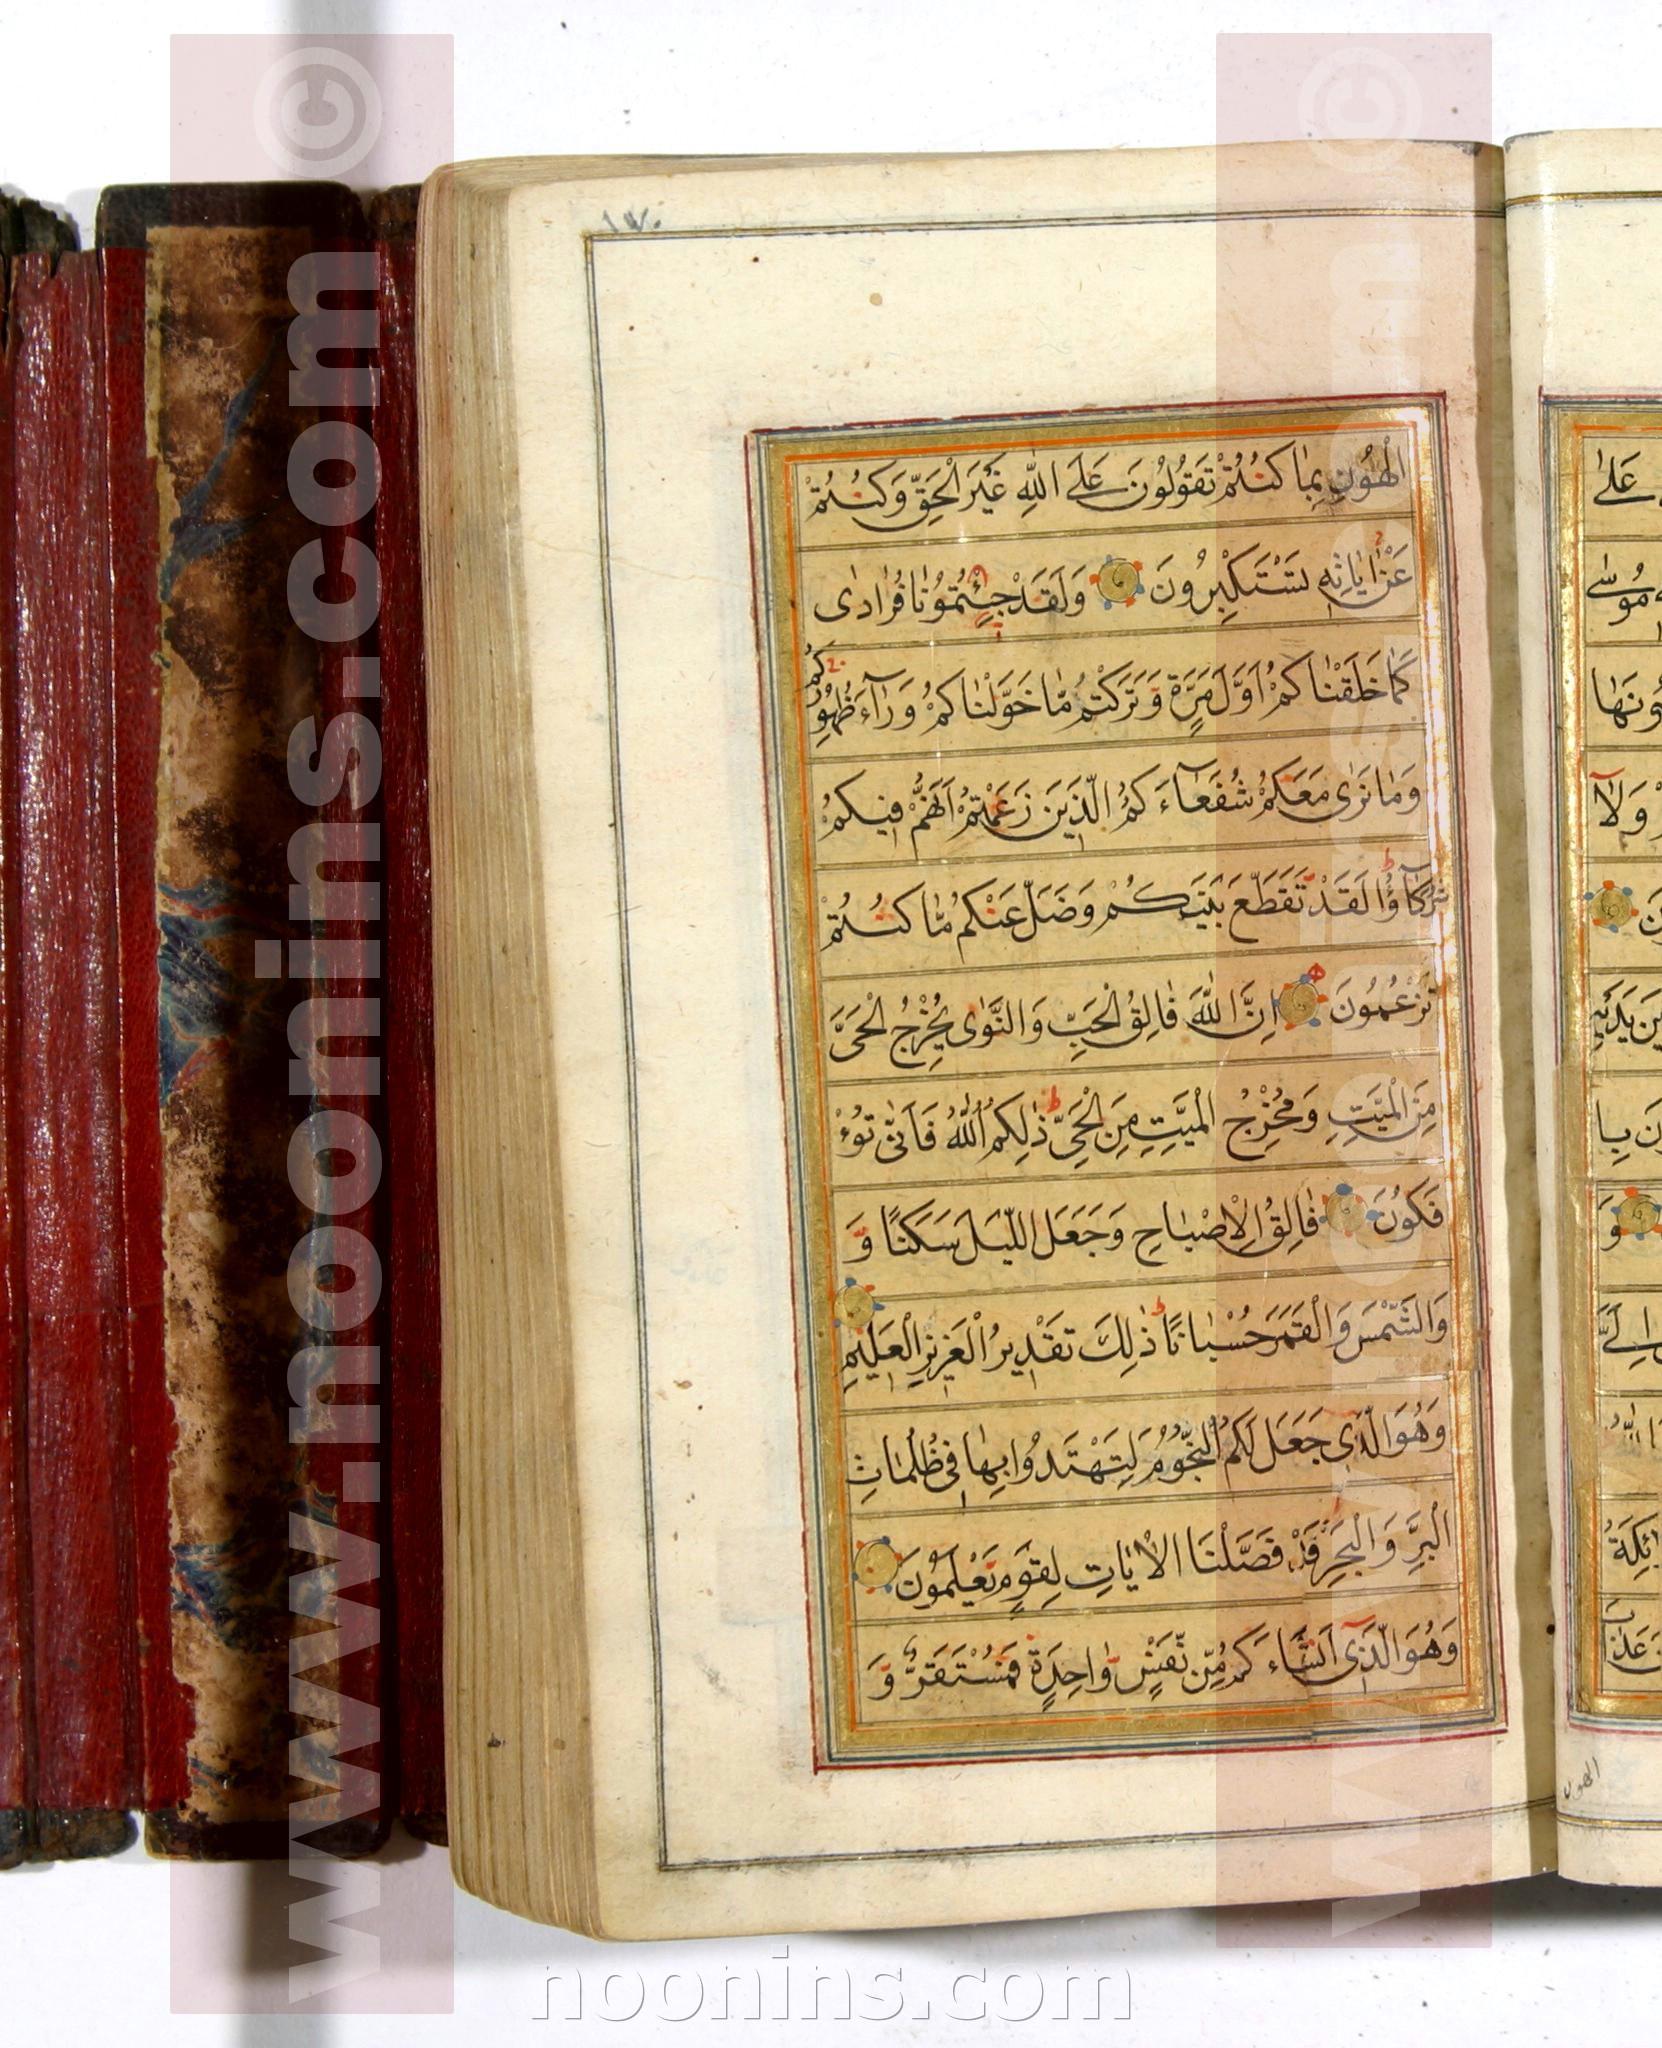 الْهُونِ بِمٰا كُنْتُمْ تَقُولُونَ عَلَى اللّٰهِ غَيْرَ الْحَقِّ وَكُنْتُمْ
عَنْ اٰيٰاتِهِ تَسْتَكْبِرُونَ وَلَقَدْ جِئْتُمُونٰا فُرٰادٰى
كَمٰا خَلَقْنٰاكُمْ اَوَّلَ مَرَّةٍ وَتَرَكْتُمْ مٰا خَوَّلْنٰاكُمْ وَرٰآءَ ظُهُورِكُمْ
وَمٰا نَرٰى مَعَكُمْ شُفَعٰآءَكُمُ الَّذِينَ زَعَمْتُمْ اَنَّهُمْ فِيكُمْ
شُرَكٰآؤُا لَقَدْ تَقَطَّعَ بَيْنَكُمْ وَضَلَّ عَنْكُمْ مٰا كُنْتُمْ
تَزْعُمُونَ اِنَّ اللّٰهَ فٰالِقُ الْحَبِّ وَالنَّوٰى يُخْرِجُ الْحَىَّ
مِنَ الْمَيِّتِ وَمُخْرِجُ الْمَيِّتِ مِنَ الْحَىِّ ذٰلِكُمُ اللّٰهُ فَاَنّٰى تُؤْ
فَكُونَ فٰالِقُ الْاِصْبٰاحِ وَجَعَلَ اللَّيْلَ سَكَنًا وَ
وَالشَّمْسَ وَالْقَمَرَ حُسْبٰانًا ذٰلِكَ تَقْدِيرُ الْعَزِيزِ الْعَلِيمِ
وَهُوَ الَّذِى جَعَلَ لَكُمُ النُّجُومَ لِتَهْتَدُوا بِهٰا فِى ظُلُمٰاتِ
الْبَرِّ وَالْبَحْرِ قَدْ فَصَّلْنَا الْاٰيٰاتِ لِقَوْمٍ يَعْلَمُونَ
وَهُوَ الَّذِى اَنْشَاَكُمْ مِنْ نَفْسٍ وٰاحِدَةٍ فَمُسْتَقَرٌّ وَ
عَلٰى
مُوسٰى
وَلٰا
الهون
www.noonins.com ©
noonins.com